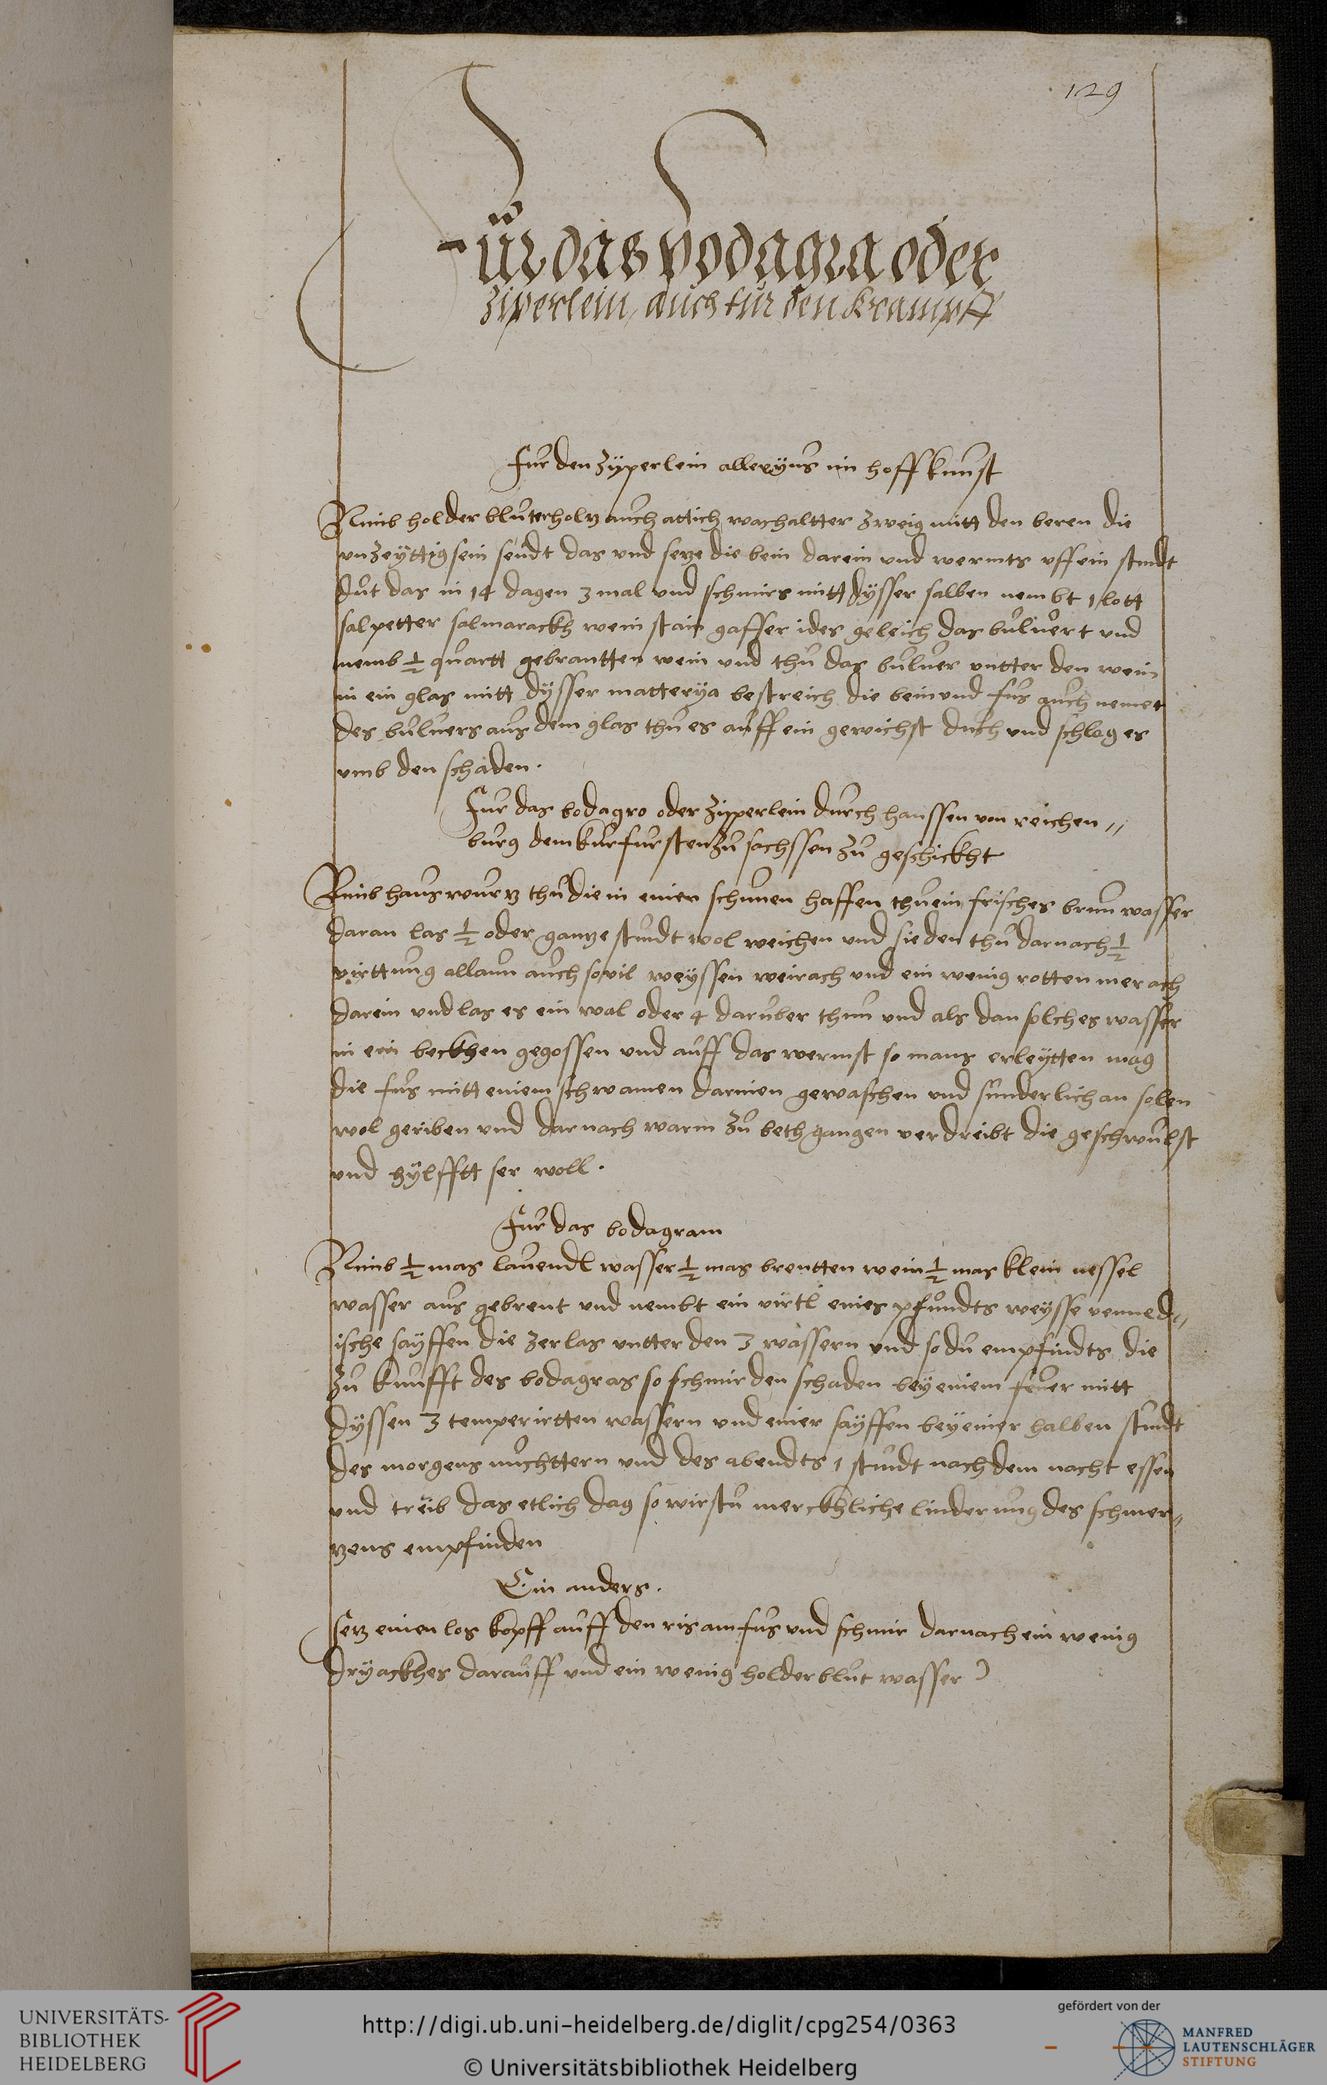 129
Für das podagra oder
Ziperlein, auch für den Krampff
Fur den zÿperlein allexÿus im hoff kunst
Nimb holder bluterholtz auch attich wachaltter zweig mitt den beren die
unzeyttig sein seudt das und setze die bein darein und wermts uff ein stundt
dut das in 14 dagen 3 mal und schmirs mitt dysser salben nembt 1 lott
salpetter salmarackh wein stain gaffer ides geleich das buluert und
nemb ½ quartt gebrantten wein und thu das buluer untter den wein
in ein glas mitt dysser matterÿa bestreich die bein und fus auch nemet
des buluers aus dem glas thu es auff ein gewichst duch und schlag es
umb den schaden.
Fur das bodagro oder zipperlein durch hanssen von reichen„
burg dem kurfursten zu sachssen zu geschickht
Nimb hauswurtz thu die in einen haffen thu ein frisches brun wasser
daran las ½ oder gantze stundt wol weichen und sieden thu darnach ½
virttung allaun auch sovil weyssen weirach und ein wenig rotten merach
darein und las es ein wal oder 4 daruber thun und als dan solches wasser
in ein beckhen gegossen und auff das wermst so mans erleytten mag
die fus mitt einem schwamen darinen gewaschen und sunderlich an solen
wol geriben und darnach warm zu beth gangen verdreibt die geschwulst
und hÿlfftt ser woll.
Fur das bodagram
Nimb ½ mas lauendl wasser ½ mas brentten wein ½ mas klein nessel
wasser aus gebrent und nembt ein virtl eines pfundts weysse venned„
ische sayffen die zerlas untter den 3 wassern und so du empfindts die
zu kunfft des bodagras so schmir den schaden bey einem feuer mitt
dyssen 3 temperirtten wassern und einer sayffen beÿ einer halben stundt
des morgens nuchttern und des abendts 1 stundt nach dem nacht essen
und treib das etlich dag so wirstu merckhliche linderung des schmer„
tzens empfinden
Ein anders.
setz einen los kopff auff den ris am fus und schmir darnach ein wenig
dryackhes darauff und ein wenig holder blut wasser
UNIVERSITÄTS-
BIBLIOTHEK
HEIDELBERG
http://digi.ub.uni-heidelberg.de/diglit/cpg254/0363
© Universitätsbibliothek Heidelberg
gefördert von der
MANFRED
LAUTENSCHLÄGER
STIFTUNG